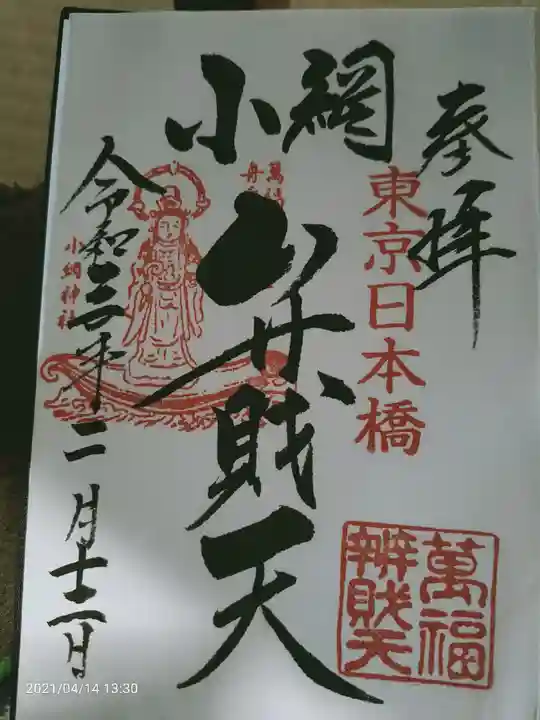 奉拝
東京日本橋
小網
弁財天
萬福
舟
小網神社
令和三年二月十二日
萬福
辨財天
2021/04/14 13:30